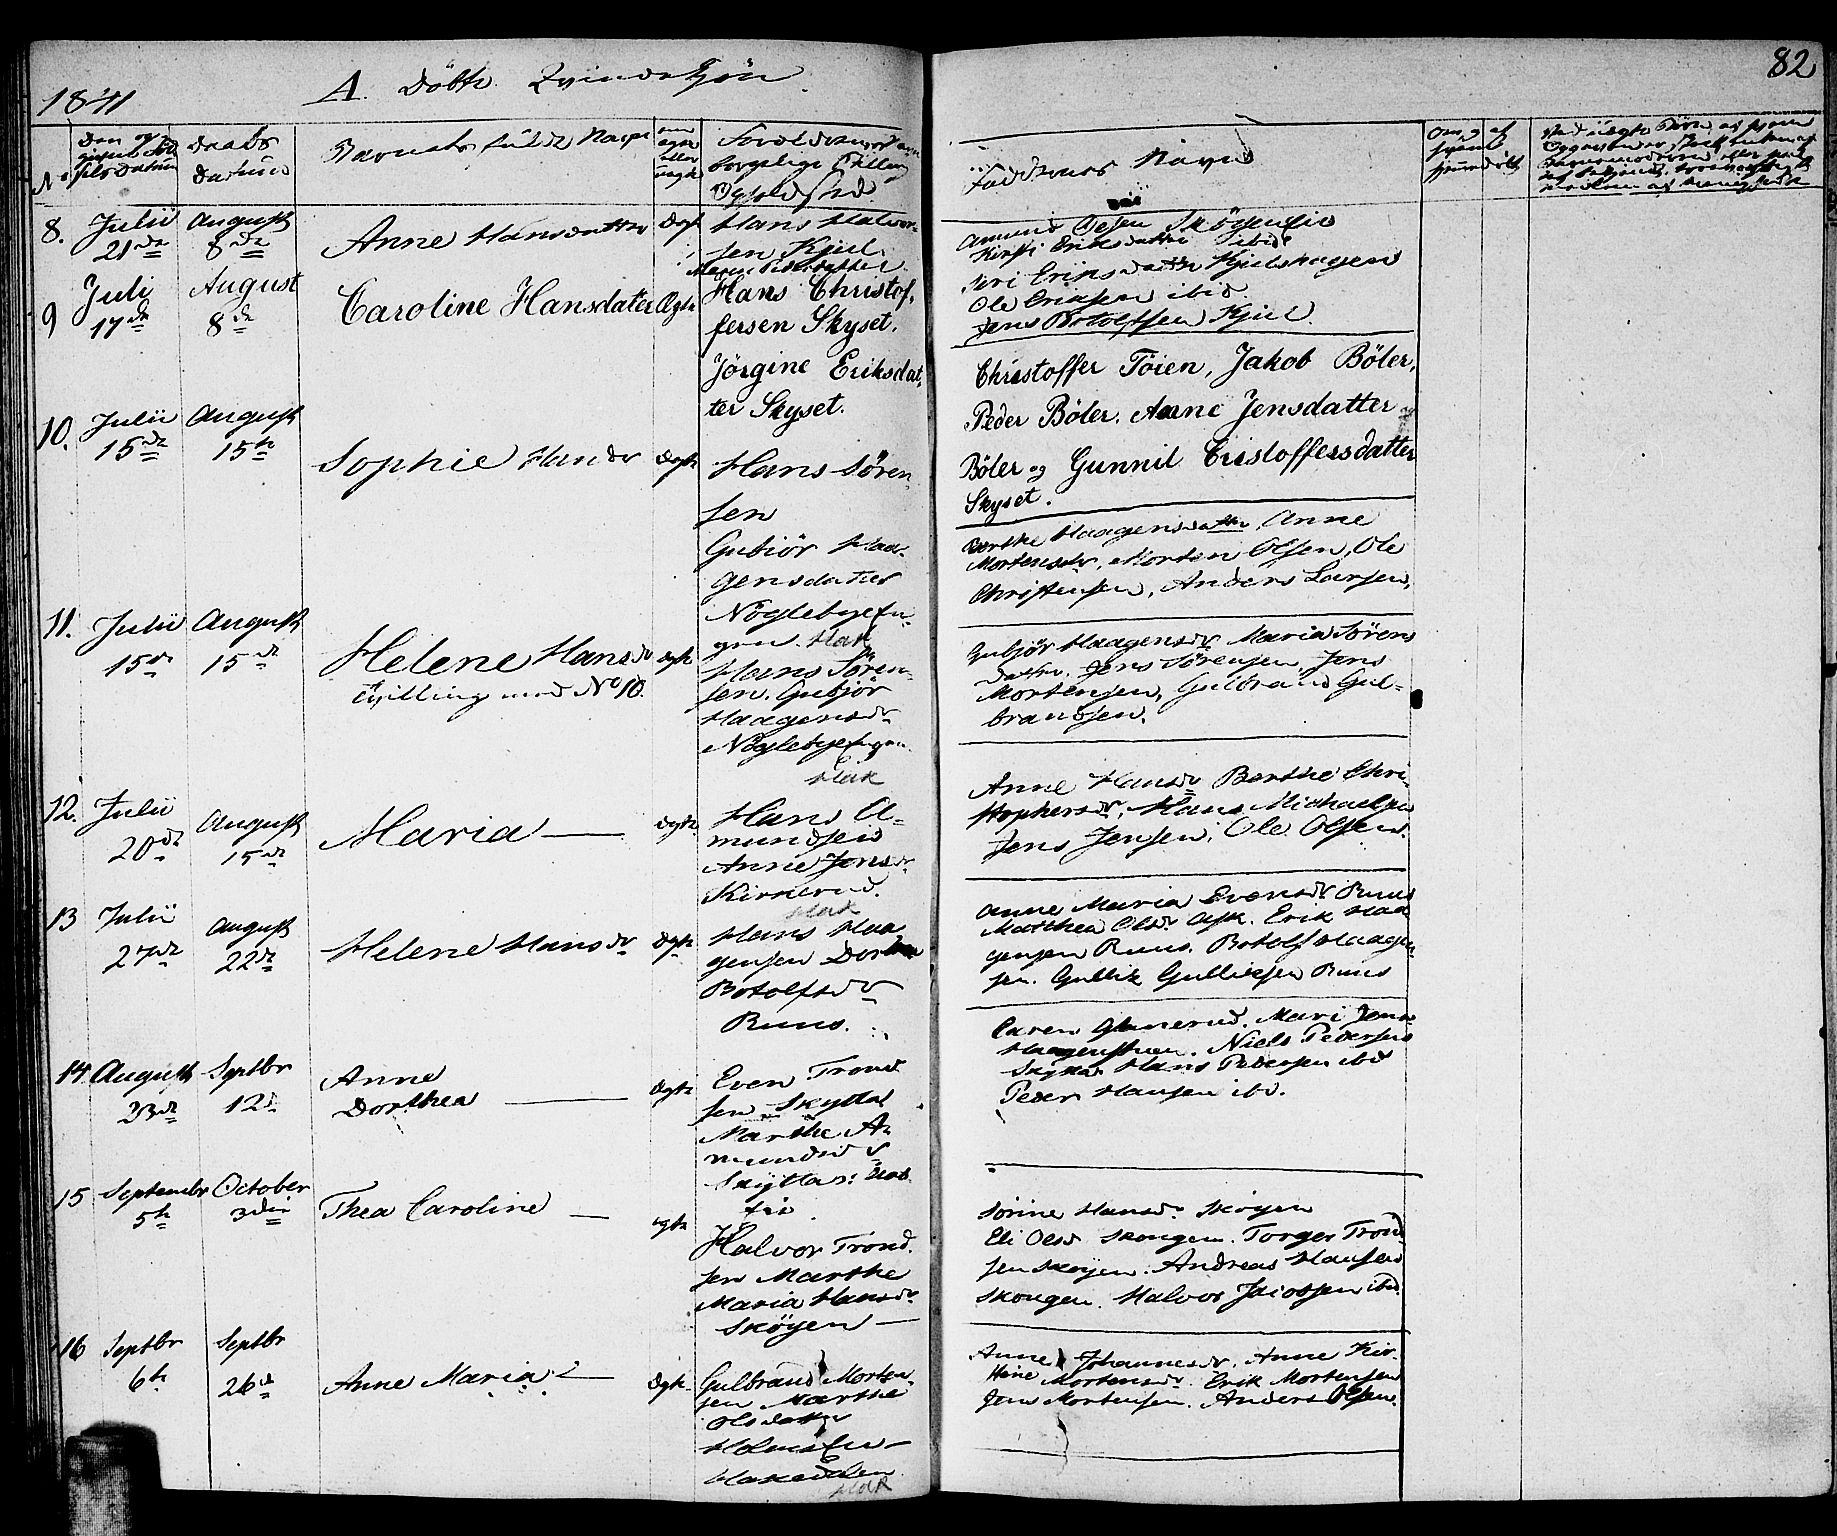 1841 A. Döbte Qvindekjön
82
No
Barnets fulde Navn
Faddernes Navne
8. Julii 21de August 8de Anne Hansdatter Ægt Hans Halvor-
sen Kjiel
Maren Pedersdatter
Amund Skögenlie
Kirsti Eriksdatter ibid
Siri Eriksdatter Kjielshagen
Ole Eriksen ibid.
Jens Botolfsen Kjiel.
9 Juli 17de August 8de Caroline Hansdater Ægte Hans Christof-
fersen Skyset.
Jørgine Eriksdat-
ter Skyset.
Christoffer Töien, Jakob Böler,
Peder Böler. Anne Jensdatter
Böler og Gunnil Cristoffersdatter
Skyset.
10. Julii 15de August 15de Sophie Hansdr ægte Hans Sören-
sen
Gubjör Haa-
gensdatter
Nöglebyeen-
gen. Hak
Berthe Haagensdatter, Anne
Mortensdr, Morten Olsen, Ole
Christensen, Anders Larsen,
11. Julii 15de August 15de Helene Hansdr ægte
Tvilling med No 10.
Hans Sören-
sen. Gubjör
Haagensdr
Nöglebyeengen
Hak
Gubjör Haagensdr Maria Sörens
datter. Jens Sörensen, Jens
Mortensen, Gulbrand Gul-
brandsen.
12. Julii 20de August 15de Maria — ægte Hans A-
mundsen
Anne Jensdr
Kirkerud.
Hak
Anne Hansdr Berthe Chri-
stophersdr, Hans Michaelsen
Jens Jensen, Ole Olsen.
13 Julii 27de August 22de Helene Hansdr ægte Hans Haa-
gensen Dorthea
Botolfsdr
Ruus.
Anne Maria Evensdr Ruus
Matthea Olsdr Ask. Erik Haa
gensen Ruus. Botolf Haagen-
sen. Gullik Gulliksen Ruus
14 August 23de Septbr 12de Anne
Dorthea — ægte Even Trond
sen Skyttal
Marthe A-
mundsdr
Maren Glenerud. Mari Jens
Haagenstuen. Niels Pedersen
Hans Pedersen ibd
Peder Hansen ibd.
15 September 5te October 3die Thea Caroline — ægte
Halvor Trond-
sen Marthe
Maria Hansdr
Sköyen —
Sörine Hansdr Sköyen
Eli Olsd Skougen. Torger Trond-
sen Sköyen. Andreas Hansen
Skougen. Halvor Jacobsen ibd.
16 Septbr 6te Septbr 26de Anne Maria — ægte Gulbrand Morten-
sen Marthe
Olsdatter
Holmsen-
Hakedalen
Hak
Anne Johannesdr. Anne Kir-
stine Mortensdr. Erik Mortensen
Jens Mortensen. Anders Olsen.